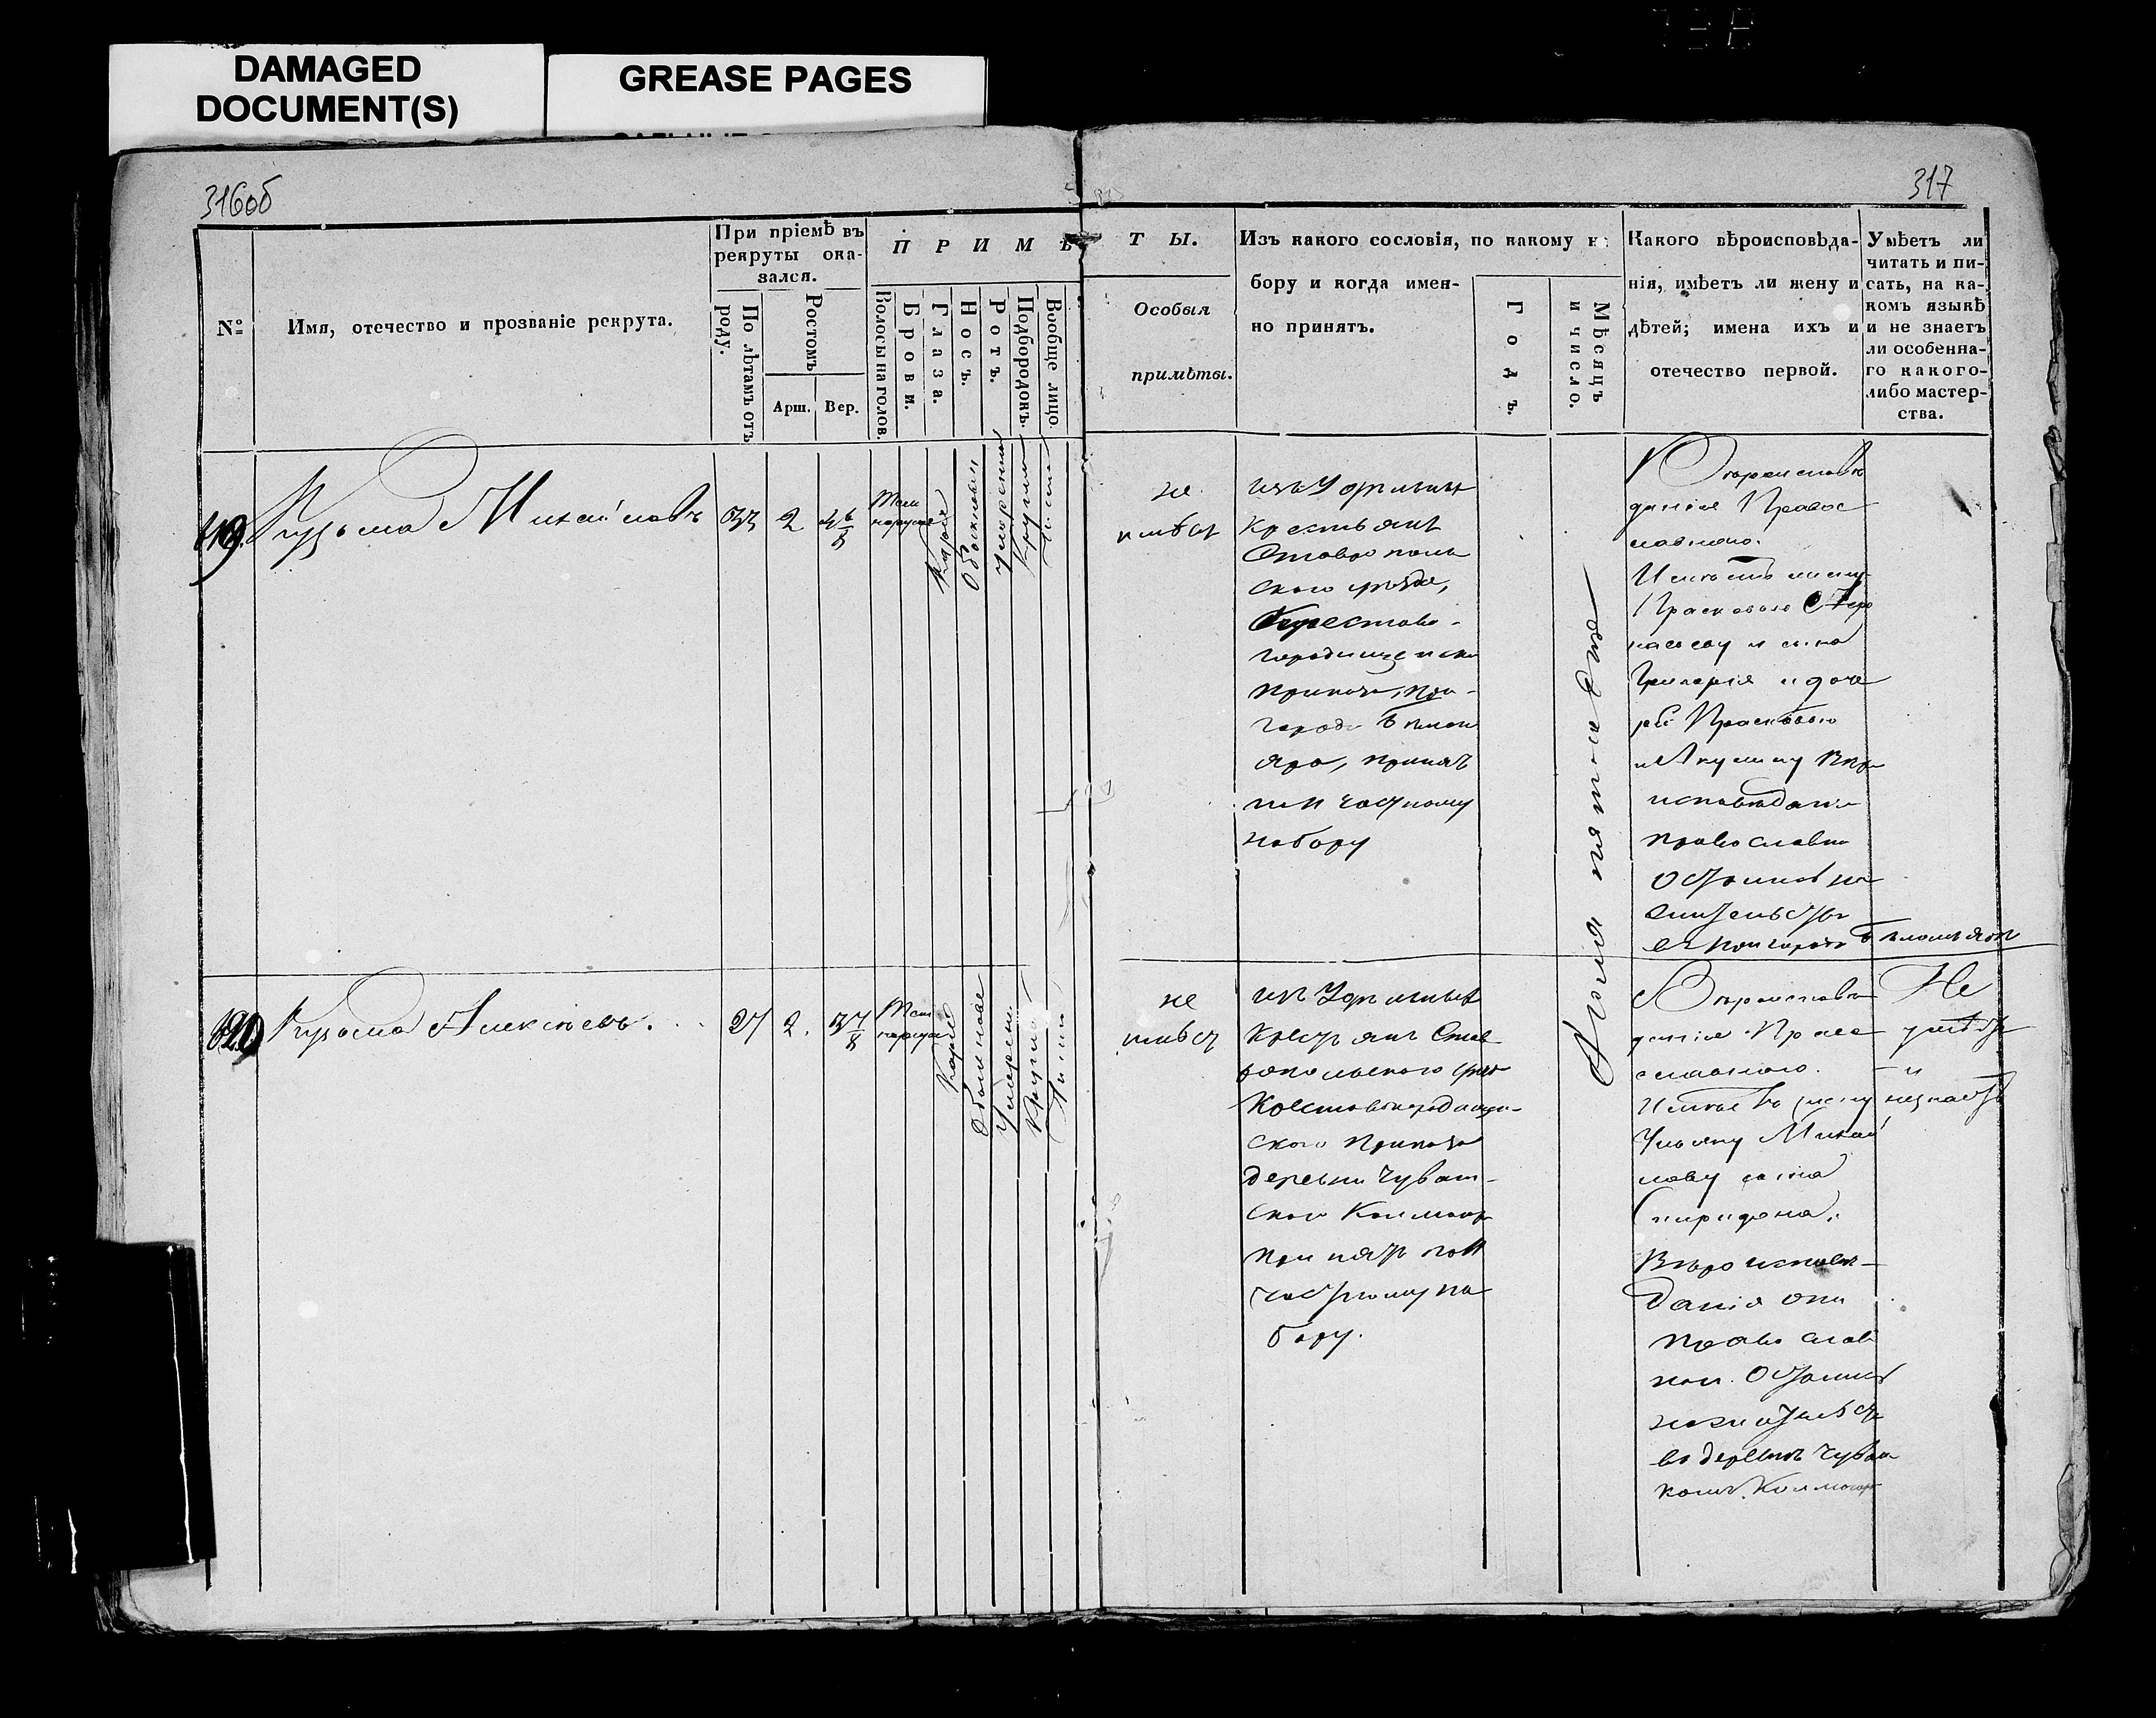 DAMAGED
DOCUMENT(S)
GREASE PAGES
316об
317
№
Имя, отечество и прозваніе рекрута.
При пріемѣ въ
рекруты ока-
зался.
По лѣтамъ отъ
роду.
Ростомъ
Арш.
Вер.
П Р И М Ѣ
Волосы на голов.
Брови.
Глаза.
Носъ.
Ротъ.
Подбородокъ.
Вообще лицо.
Т Ы.
Особыя
примѣты.
Изъ какого сословія, по какому н
бору и когда имен-
но принятъ.
Годъ.
Мѣсяцъ
и число.
Какого вѣроисповѣда-
нія, имѣетъ ли жену и
дѣтей; имена ихъ и
отечество первой.
Умѣетъ ли
читать и пи-
сать, на ка-
комъ языкѣ
и не знаетъ
ли особенна-
го какого-
либо мастер-
ства.
Кузьма Михайловъ
33
2
3 6/8
Карые
Обыкновен
Умѣренны
Круглы
Чисто
не
имѣет
изъ Удѣльных
Крестьянъ
Ставрополь
ского уѣзда,
Крестово-
городищенска
приказа, при-
города Бѣлаго
яра, принятъ
по частному
набору
Іюля пятаго дня
Вѣроисповѣ
данія Правос
лавнаго.
Имѣетъ жену
Прасковью
и сына
Григорія и доче
рей Прасковью
и Акулину Вѣро
исповѣданія
православна
остались на
жительствѣ
въ пригородѣ Бѣломъ ярѣ
Кузьма Алексѣевъ.
27
2.
3 7/8
Карые
Обыкновенное
Умѣренны
Круглый
Чисто
не
имѣет
изъ Удѣльных
Крестьянъ Став
ропольскаго уѣзд
Крестовогородищен-
скаго Приказа
деревни Чуваш-
скаго Калмаюр
принятъ по
частному на
бору.
Вѣроисповѣ
данія Право
славнаго.
Имѣетъ жену
Ульяну Михай
лову сына
Спиридона.
Вѣроисповѣ-
данія они
православ
наго. Остались
на жительствѣ
въ деревнѣ Чуваш
комъ Калмаюр
Не
умѣетъ
и
незнаетъ